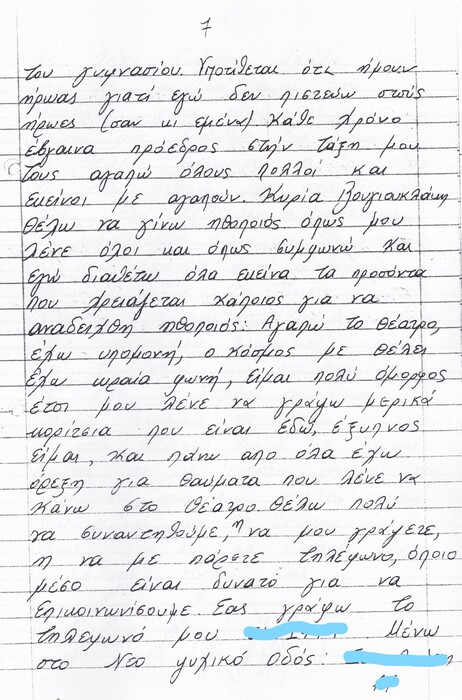 7
του γυμνασίου. Υποτίθεται ότι ήμουν
ήρωας γιατί εγώ δεν πιστεύω στούς
ήρωες (σαν κι εμένα) κάθε χρόνο
έβγαινα πρόεδρος στήν τάξη μου
τους αγαπώ όλους πολλοί και
εκείνοι με αγαπούν. Κυρία Βουγιουκλάκη
θέλω να γίνω ηθοποιός όπως μου
λένε όλοι και όπως συμφωνώ και
εγώ διαθέτω όλα εκείνα τα προσόντα
που χρειάζεται κάποιος για να
αναδειχθή ηθοποιός: Αγαπώ το θέατρο,
έχω υπομονή, ο κόσμος με θέλει
έχω ωραία φωνή, είμαι πολύ όμορφος
έτσι μου λένε να γράψω μερικά
κορίτσια που είναι εδώ, έξυπνος
είμαι, και πάνω απο όλα έχω
όρεξη για θαύματα που λένε να
κάνω στο θέατρο. Θέλω πολύ
να συναντηθούμε, ή να μου γράψετε,
η να με πάρετε τηλέφωνο, όποιο
μέσο είναι δυνατό για να
επικοινωνίσουμε. Σας γράφω το
τηλέφωνό μου Μένω
στο Νεο ψυχικό οδός: